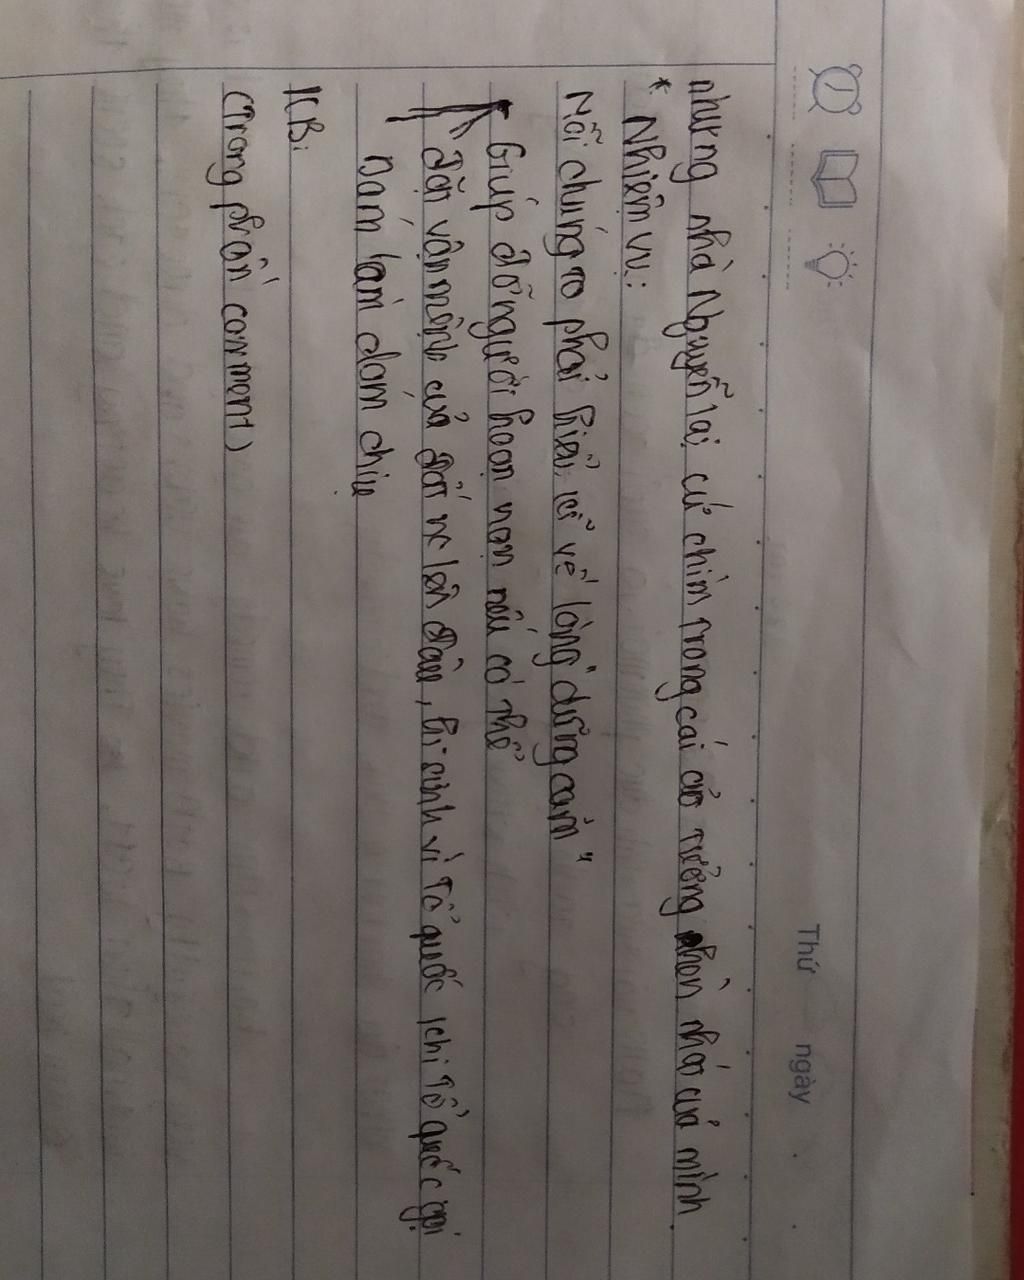 Thứ ngày
nhưng nhà Nguyễn lại cứ chìm trong cái ảo tưởng nhàn nhã của mình.
* Nhiệm vụ:
Mỗi chúng ta phải hiểu rõ về lòng "dũng cảm"
Giúp đỡ người hoạn nạn nếu có thể
đặt vận mệnh của đất nc lên đầu, hi sinh vì Tổ quốc khi Tổ quốc gọi
Dám làm dám chịu
KB:
(Trong phần comment)